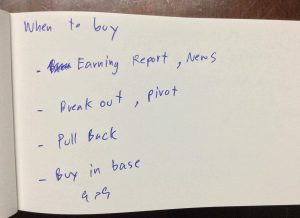 When to buy
- Earning Report, News
- Break out, pivot
- Pull Back
- Buy in base